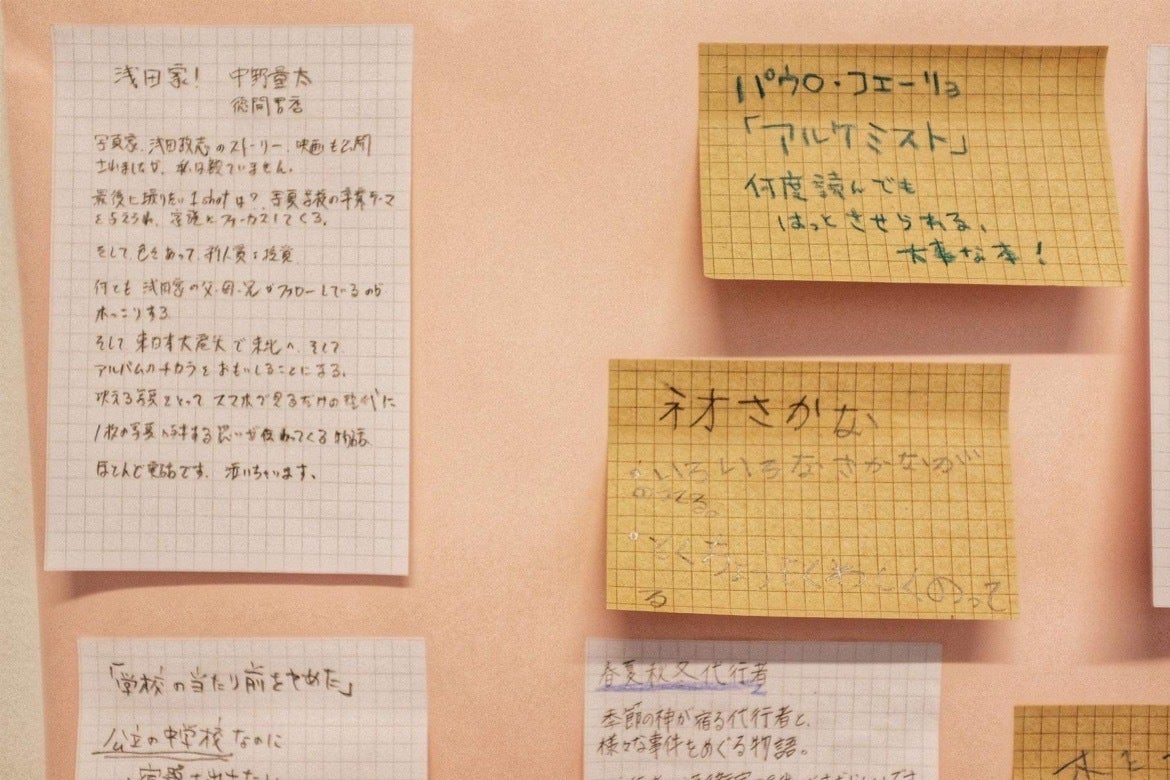 浅田家! 中野量太
徳間書店
写真家、浅田政志のストーリー、映画も公開
されましたが、私は観ていません。
最後に撮りたい1shotは?写真学校の卒業テーマ
を与えられ、家族にフォーカスしてくる。
そして色々あって、新人賞を
何でも浅田家の父・母・兄がフォローしているのが
ほっこりする
そして東日本大震災で東北へ、そして
アルバムのチカラをおもいしることになる。
映える写真をとってスマホで見るだけの時代に
1枚の写真に対する思いが伝わってくる物語
ほとんど実話です。泣いちゃいます。
パウロ・コエーリョ
「アルケミスト」
何度読んでも
はっとさせられる、
大事な本!
ネオさかな
・いろいろなさかなが
のってる。
くわしくのって
る
「学校の当たり前をやめた」
公立の中学校なのに
春夏秋冬代行者
季節の神が宿る代行者と、
様々な事件をめぐる物語。